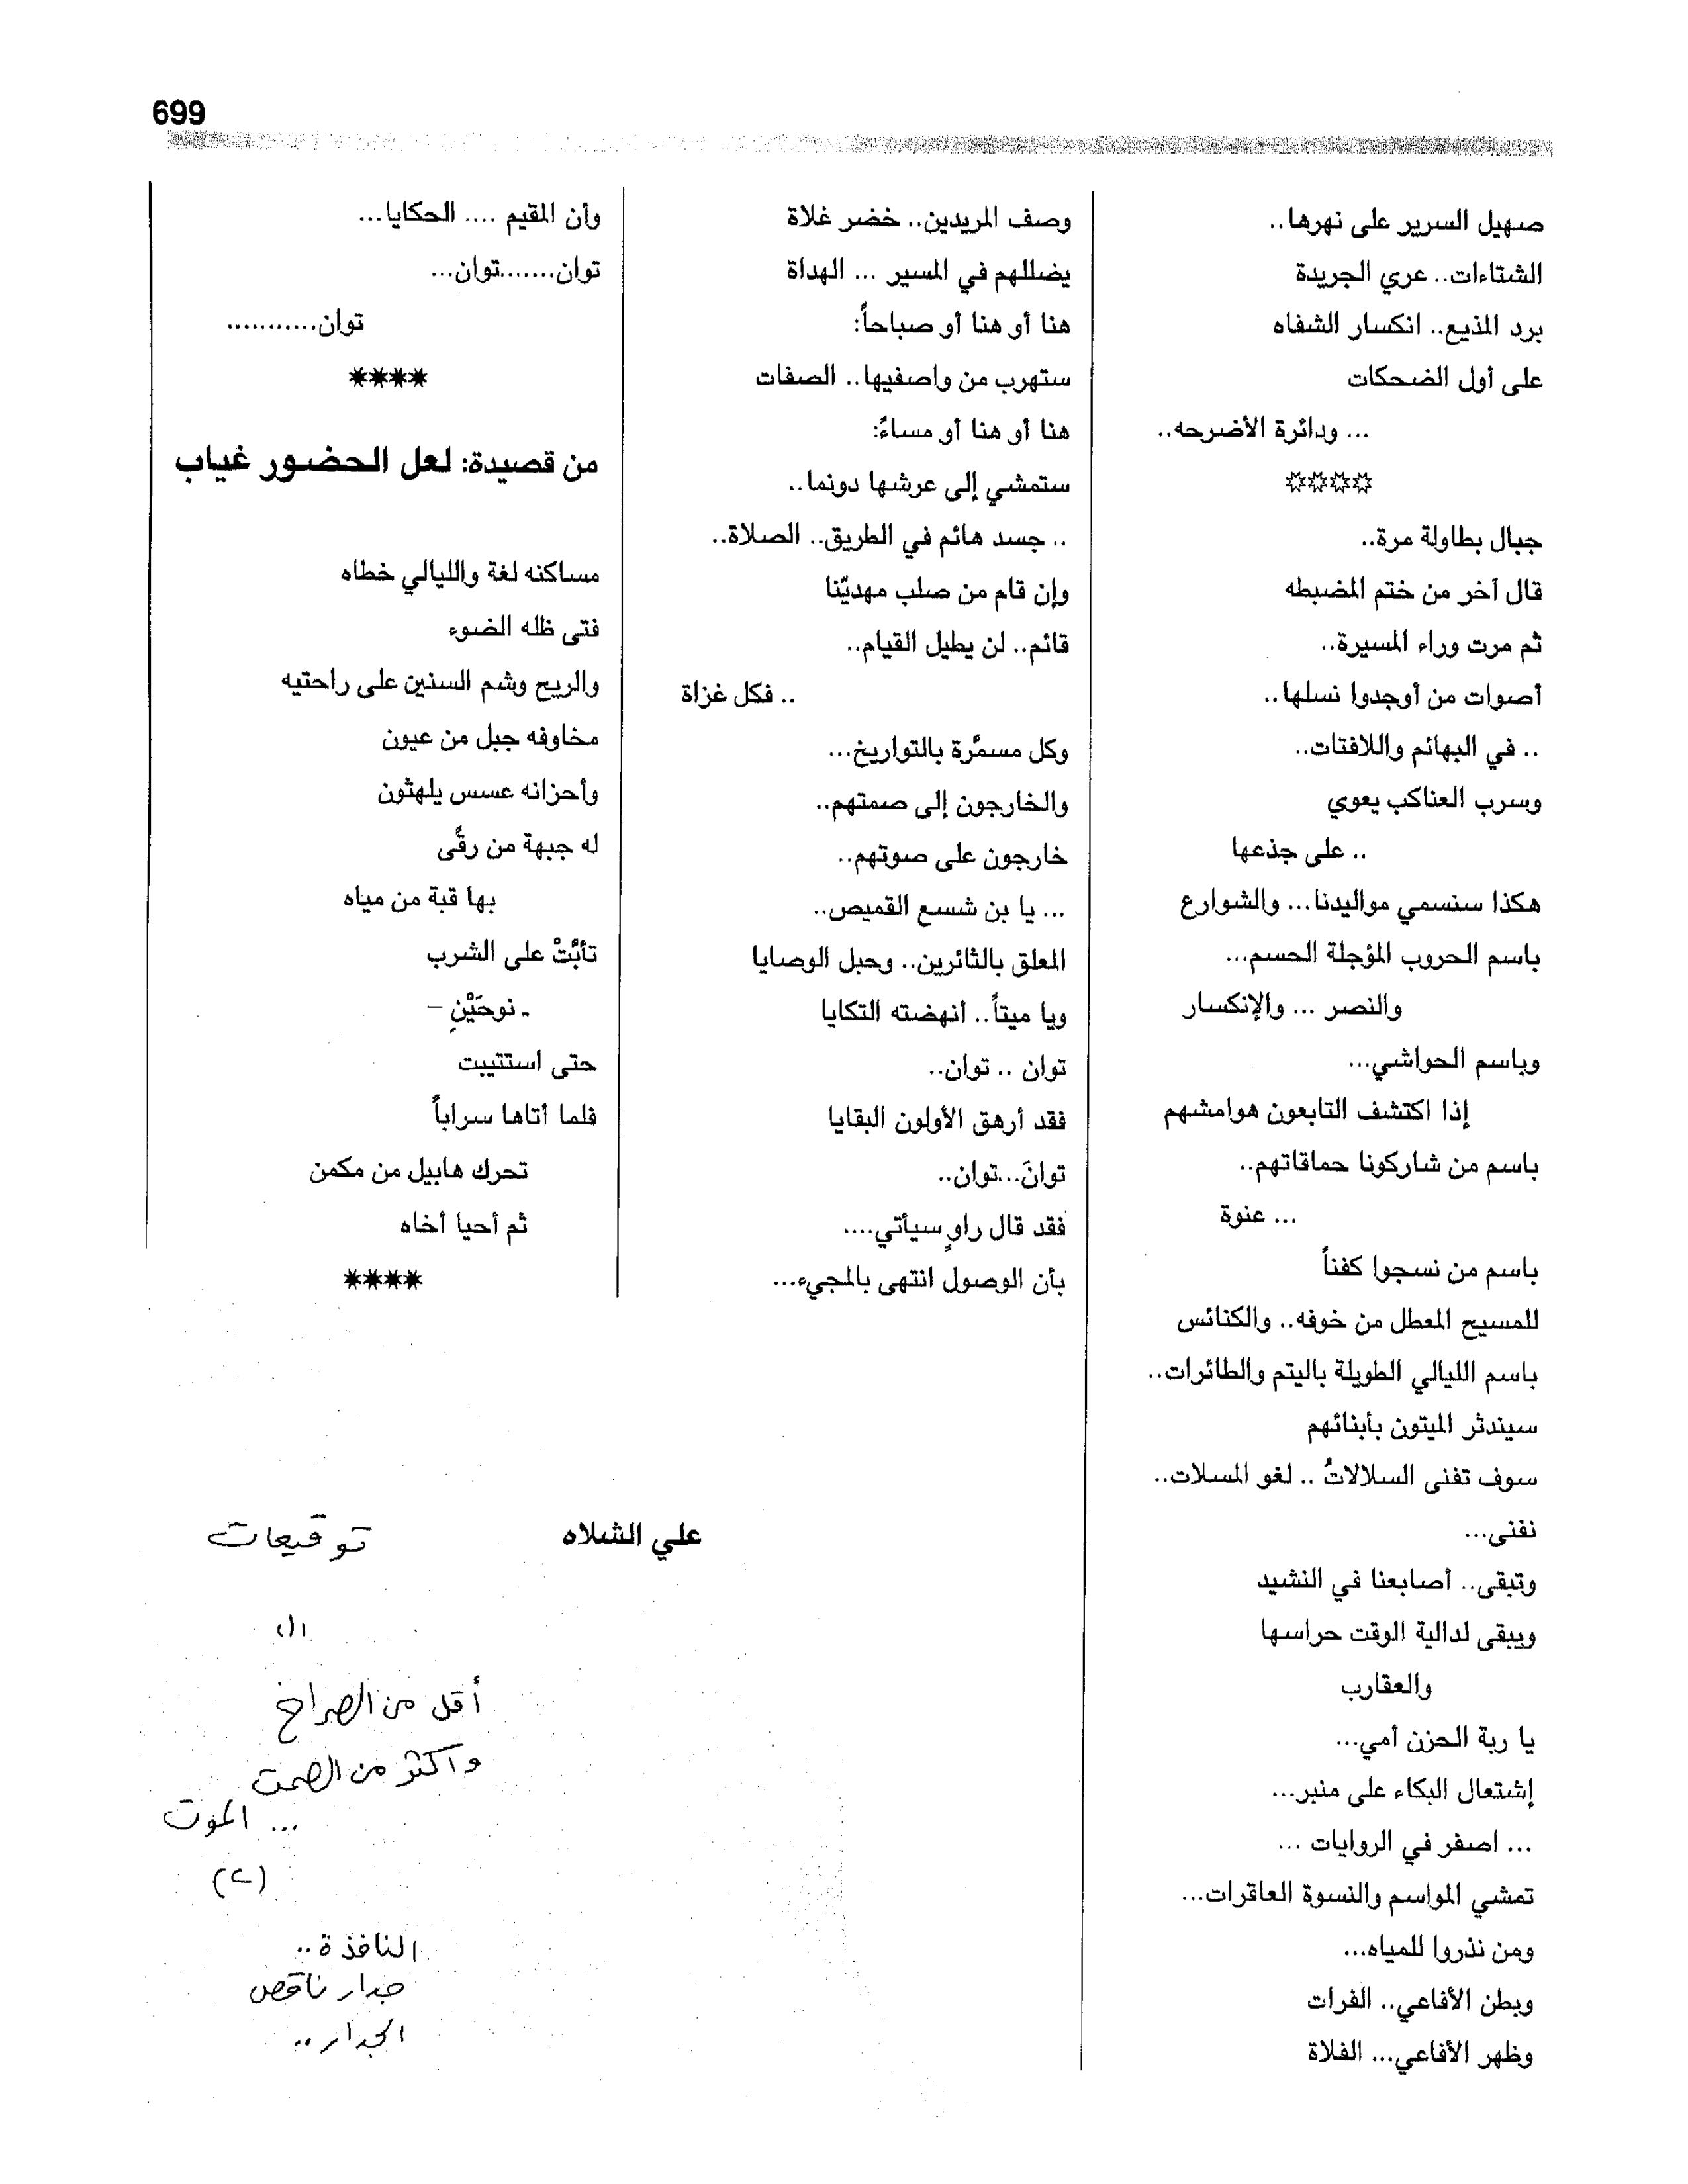 699
صهيل السرير على نهرها..
الشتاءات.. عري الجريدة
برد المذيع.. انكسار الشفاه
على أول الضحكات
... ودائرة الأضرحه..
☼☼☼☼
جبال بطاولة مرة..
قال آخر من ختم المضبطه
ثم مرت وراء المسيرة..
أصوات من أوجدوا نسلها..
.. في البهائم واللافتات..
وسرب العناكب يعوي
.. على جذعها
هكذا سنسمي مواليدنا... والشوارع
باسم الحروب المؤجلة الحسم...
والنصر ... والإنكسار
وباسم الحواشي...
إذا اكتشف التابعون هوامشهم
باسم من شاركونا حماقاتهم..
... عنوة
باسم من نسجوا كفناً
للمسيح المعطل من خوفه.. والكنائس
باسم الليالي الطويلة باليتم والطائرات..
سيندثر الميتون بأبنائهم
سوف تفنى السلالاتُ .. لغو المسلات..
نفنى...
وتبقى.. أصابعنا في النشيد
ويبقى لدالية الوقت حراسها
والعقارب
يا ربة الحزن أمي...
إشتعال البكاء على منبر...
... اصفر في الروايات ...
تمشي المواسم والنسوة العاقرات...
ومن نذروا للمياه...
وبطن الأفاعي.. الفرات
وظهر الأفاعي... الفلاة
وصف المريدين.. خضر غلاة
يضللهم في المسير ... الهداة
هنا أو هنا أو صباحاً:
ستهرب من واصفيها.. الصفات
هنا أو هنا أو مساءً:
ستمشي إلى عرشها دونما..
.. جسد هائم في الطريق.. الصلاة..
وإن قام من صلب مهديّنا
قائم.. لن يطيل القيام..
.. فكل غزاة
وكل مسمَّرة بالتواريخ...
والخارجون إلى صمتهم..
خارجون على صوتهم..
... يا بن شسع القميص..
المعلق بالثائرين.. وحبل الوصايا
ويا ميتاً.. أنهضته التكايا
توان .. توان..
فقد أرهق الأولون البقايا
توانَ...توان..
فقد قال راوٍ سيأتي....
بأن الوصول انتهى بالمجيء...
وأن المقيم .... الحكايا...
توان.......توان...
توان...........
✷✷✷✷
من قصيدة: لعل الحضور غياب
مساكنه لغة والليالي خطاه
فتى ظله الضوء
والريح وشم السنين على راحتيه
مخاوفه جبل من عيون
وأحزانه عسس يلهثون
له جبهة من رقًى
بها قبة من مياه
تأبَّتْ على الشرب
- نوحَيْنِ –
حتى استتيبت
فلما أتاها سراباً
تحرك هابيل من مكمن
ثم أحيا أخاه
✷✷✷✷
علي الشلاه
توقيعات
(١)
أقل من الصراخ
وأكثر من الصمت
... الموت
(٢)
النافذة..
جدار ناقص
الجدار..